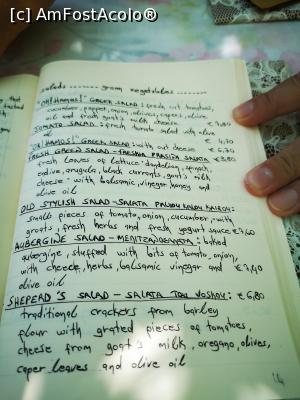 [c] AmFostAcolo®
salads ...... from vegetables ........
"OH! HAMOS!" GREEK SALAD: fresh cut tomatoes,
cucumber, pepper, onion, olives, capers, olive
oil and fresh goat's milk cheese €7,80
TOMATO SALAD - fresh tomato salad with olive
oil
"OH! HAMOS!" GREEK SALAD: with out cheese
FRESH GREEN SALAD - FRESKIA PRASINI SALATA €5,80
fresh leaves of lettuce, dandelion, spinach,
endive, arugula, black currants, goat's milk
cheese - with balsamic, vinegar, honey and
olive oil
OLD STYLISH SALAD - SALATA PALIOU KALOU KAIROU:
small pieces of tomato, onion, cucumber, with
groats, fresh herbs and fresh yogurt sauce
AUBERGINE SALAD - baked
aubergine, stuffed with bits of tomato, onion,
with cheese, herbs, balsamic vinegar and €7,40
olive oil
SHEPERD'S SALAD - SALATA TOU VOSKOU: €6,80
traditional crackers from barley
flour with grated pieces of tomatoes,
cheese from goat's milk, oregano, olives,
caper leaves and olive oil